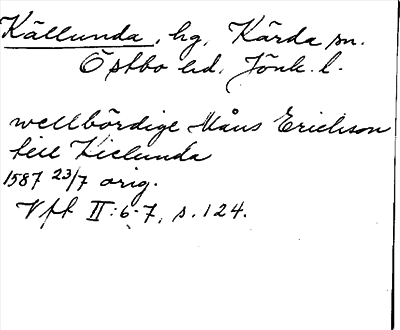 Källunda, hg, Kärda sn.
Östbo hd. Jönk. l.
wellbördige Måns Erichson
till Kielunda
1587 23/7 orig.
Vfl II:6-7, s. 124.